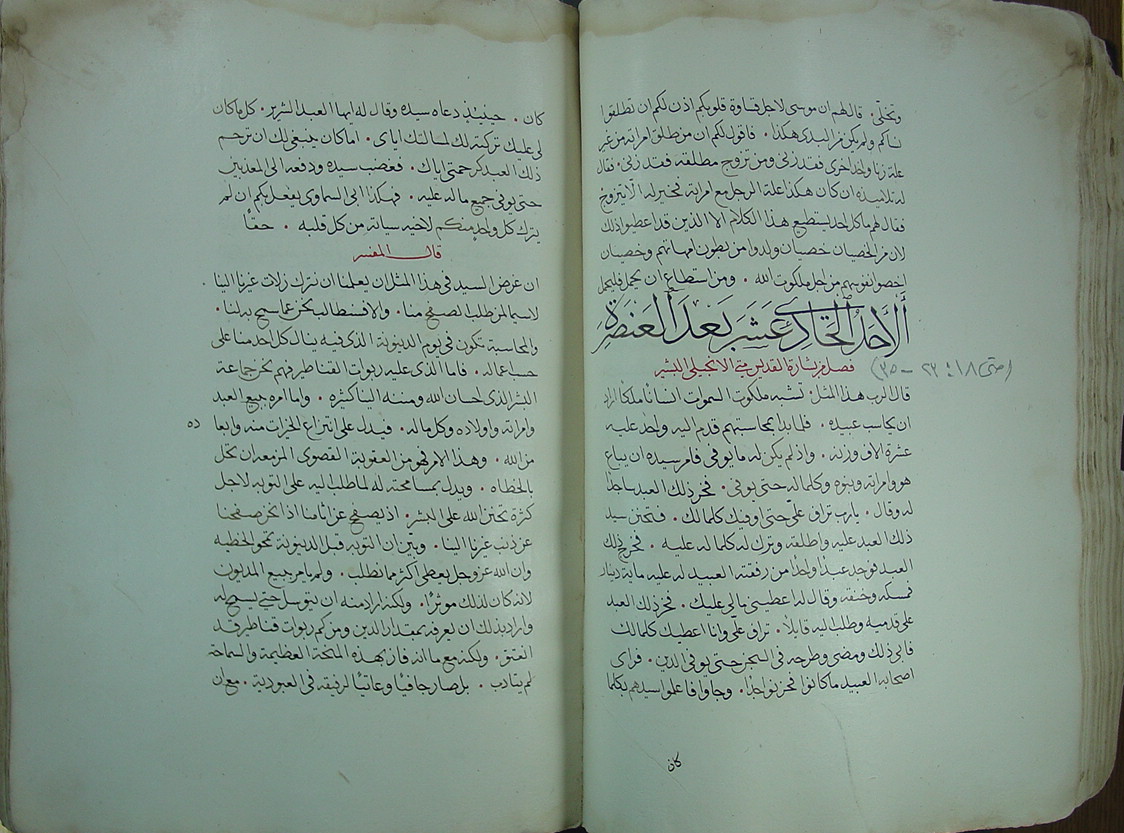 وتخلّى. قال لهم ان موسى لاجل قساوة قلوبكم اذن لكم ان تطلقوا
نساكم ولم يكن من البدى هكذا. فاقول لكم ان من طلق امراته من غير
علة زنا واخذ اخرى فقد زنى ومن تزوج مطلقه فقد زنى. فقال
له تلاميذه ان كان هكذا علة الرجل مع امراته فخير له الّا يتزوج
فقال لهم ما كل احد يستطيع هذا الكلام الا الذين قد اعطيوا ذلك
لان من الخصيان خصيان ولدوا من بطون امهاتهم وخصيان
اخصوا نفوسهم من اجل ملكوت الله. ومن استطاع ان يحمل فليحمل
أَلأَحَدُ الحَادِى عَشَر بَعْدَ العَنصَرة
فصل من بشارة القديس متى الانجيلى البشير
(متى ١٨: ٢٣ - ٣٥)
قال الرب هذا المثل. تشبه ملكوت السموات انسانًا ملكًا اراد
ان يحاسب عبيده. فلما بدا بمحاسبتهم قدم اليه واحد عليه
عشرة الاف وزنه. واذ لم يكن له ما يوفى فامر سيده ان يباع
هو وامراته وبنوه وكلما له حتى يوفى. فخر ذلك العبد ساجدًا
له وقال. يا رب تراق علىّ حتى اوفيك كلما لك. فتحنن سيد
ذلك العبد عليه واطلقه وترك له كلما له عليه. فخرج ذلك
العبد فوجد عبدًا واحدًا من رفقته العبيد له عليه ماية دينار
فمسكه وخنقه وقال له اعطينى مالى عليك. فخر ذلك العبد
على قدميه وطلب اليه قايلًا. تراق علىّ وانا اعطيك كلما لك
فابى ذلك ومضى وطرحه فى السجن حتى يوفى الدين. فراى
اصحابه العبيد ما كان فحزنوا جدًا. وجاوا فاعلموا سيدهم بكلما
كان
كان. حينيذٍ دعاه سيده وقال له ايها العبد الشرير. كل ما كان
لى عليك تركته لك لمسالتك اياى. اما كان ينبغى لك ان ترحم
ذلك العبد كرحمتى اياك. فغضب سيده ودفعه الى المعذبين
حتى يوفى جميع ما له عليه. فهكذا ابى السماوى يفعل بكم ان لم
يترك كل واحدٍ منكم لاخيه سياته من كل قلبه. حقًا
قال المفسر
ان غرض السيد فى هذا المثل ان يعلمنا ان نترك زلات غيرنا الينا.
لا سيما لمن طلب الصفح منا. والا فسنطالب نحن عما سمح به لنا.
والمحاسبة تكون فى يوم الدينونة الذى فيه ينال كل احد منا على
حسب اعماله. فاما الذى عليه ربوات القناطر فهم نحن جماعة
البشر الذى احسان الله ومننه الينا كثيره. واما امره ببيع العبد
وامراته واولاده وكل ماله. فيدل على انتزاع الخيرات منه وابعاده
من الله. وهذا الامر فهو من العقوبة القصوى المزمعه ان تحل
بالخطاه. ويدل بمسامحته له لما طلب اليه على التوبه لاجل
كثرة تحنن الله على البشر. اذ يصفح عن اثامنا اذا نحن صفحنا
عن ذنب غيرنا الينا. وبيّن ان التوبه قبل الدينونة تمحو الخطيه
وان الله عز وجل يعطى اكثر مما نطلب. ولم يامر ببيع المديون
لانه كان لذلك موثرًا. ولكنه اراد منه ان يتوسل حتى يسمح له
واراد بذلك ان يعرفه بمقدار الدين ومن كم ربوات قناطر قد
انعتق. ولكنه مع ما انه فاز بهذه المنحة العظيمة والسماحة
لم يتادب. بل صار جافيًا وعاتيًا لرفيقه فى العبودية. مع ان